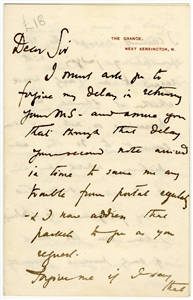 £18
THE GRANGE,
WEST KENSINGTON, W.
Dear Sir
I must ask you to
forgive my delay in returning
your MS - and assure you
that through that delay
your second note arrived
in time to save me any
trouble from postal
& I now address the
parcel to you as you
request.
Forgive me if I say
that